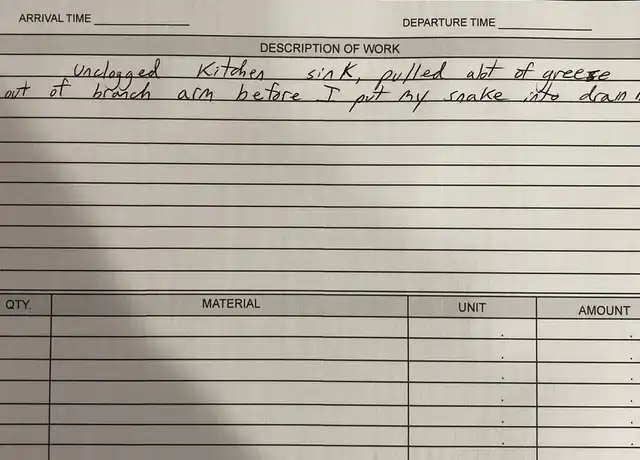 ARRIVAL TIME DEPARTURE TIME
DESCRIPTION OF WORK
Unclogged Kitchen sink, pulled alot of greese
out of branch arm before I put my snake into drain
QTY. MATERIAL UNIT AMOUNT